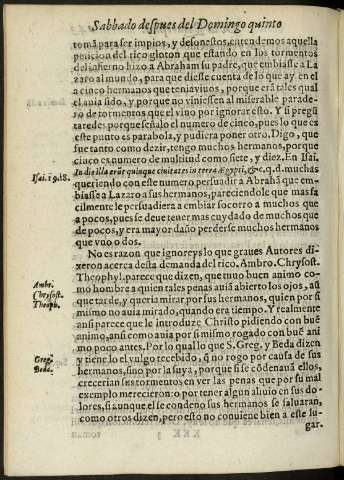 Sabbado despues del Domingo quinto
tomã para ser impios, y desonestos, entendemos aquella
peticion del rico gloton que estando en los tormentos
del infierno hizo a Abraham su padre, que embiasse a La
zaro al mundo, para que diesse cuenta de lo que ay en el
a cinco hermanos que tenia viuos, porque erã tales qual
el auia sido, y porque no viniessen al miserable parade-
ro de tormentos que el vino por ignorar esto. Y si pregũ
taredes porque señalo el numero de cinco, pues lo que es
este punto es parabola, y pudiera poner otro. Digo, que
fue tanto como dezir, tengo muchos hermanos, porque
cinco es numero de multitud como siete, y diez. En Isai.
Isai. 19. 18.
In die illa erũt quinque ciuitates in terra Ægypti, &c, q.d. muchas
queriendo con este numero persuadir a Abrahã que em-
biasse a Lazaro a sus hermanos, pareciendole que mas fa
cilmente le persuadiera a embiar socorro a muchos que
a pocos, pues se deue tener mas cuydado de muchos que
de pocos, y era mayor daño perderse muchos hermanos
que vno o dos.
No es razon que ignoreys lo que graues Autores di-
xeron acerca desta demanda del rico. Ambro. Chrysost.
Ambr.
Chrysost.
Theoph.
Theophyl. parece que dizen, que tuuo buen animo co
mo hombre a quien tales penas auiã abierto los ojos, aũ
que tarde, y queria mirar por sus hermanos, quien por si
mismo no auia mirado, quando era tiempo. Y realmente
ansi parece que le introduze Christo pidiendo con buẽ
animo, ansi como auia por si mismo rogado con buẽ ani
mo poco antes. Por lo qual lo que S. Greg. y Beda dizen
Greg.
Beda.
y tiene lo el vulgo recebido, q̃ no rogo por causa de sus
hermanos, sino por la suya, porque si se cõdenauã ellos,
crecerian sus tormentos en ver las penas que por su mal
exemplo merecieron: o por tener algun aliuio en sus do-
lores, si aunque el se condeno sus hermanos se saluaran,
como otros dizen, pero esto no conuiene bien a este lu-
gar.